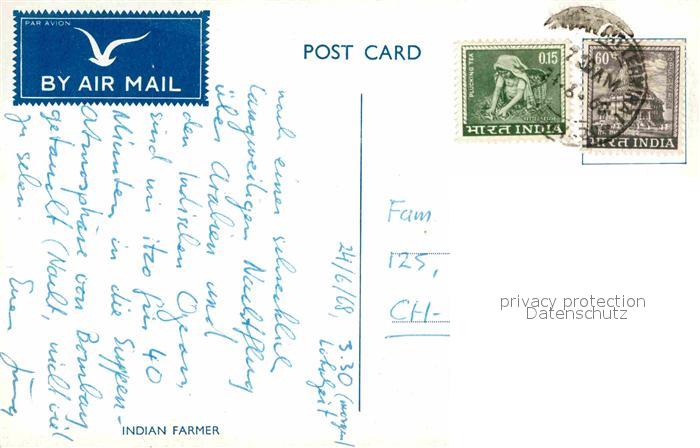 PAR AVION
BY AIR MAIL
POST CARD
PLUCKING TEA
0.15
भारत INDIA
60
भारत INDIA
24/6/68, 3.30 (morgen)
Lokalzeit
nach einem schrecklich
langweiligen Nachtflug
über Arabien und
den Indischen Ozean,
sind wir itzo für 40
Minuten in die Suppen-
Atmosphäre von Bombay
getaucht (Nacht, nicht viel
zu sehen.
Euer Jürg
Fam.
125,
CH-
privacy protection
Datenschutz
INDIAN FARMER